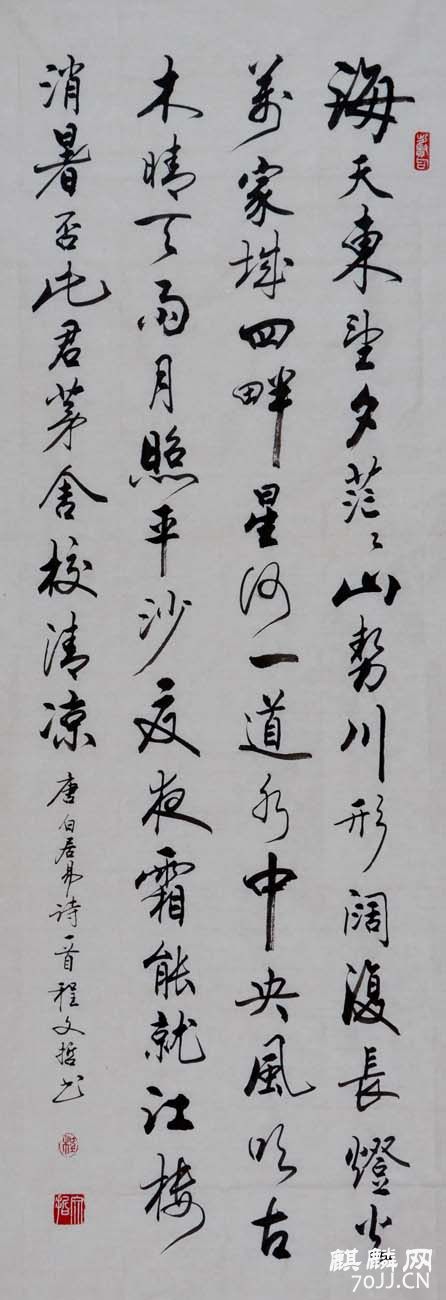 海天東望夕茫〻山勢川形闊復長燈火
萬家城四畔星河一道水中央風吹古
木晴天雨月照平沙夏夜霜能就江樓
消暑否比君茅舍校清凉
唐白居易诗一首程文哲书
麒麟网
70JJ.CN